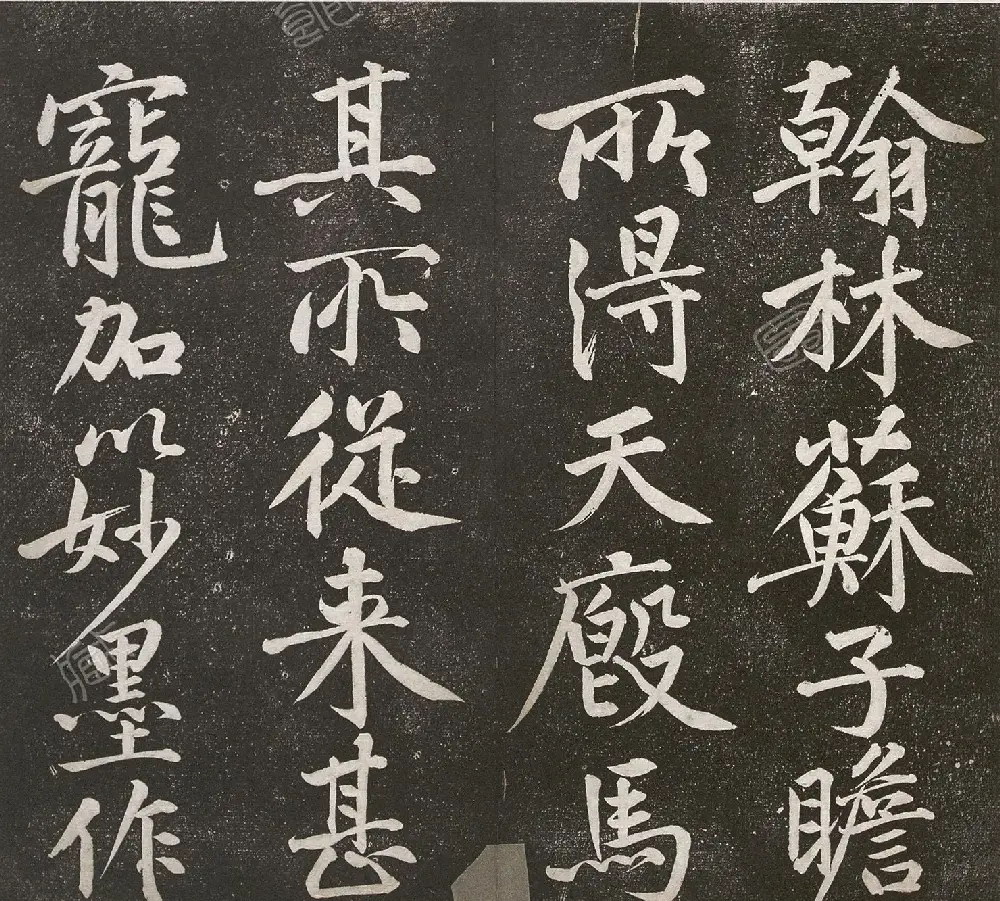 翰林蘇子瞻
所得天廄馬
其所從来甚
寵加以妙墨作